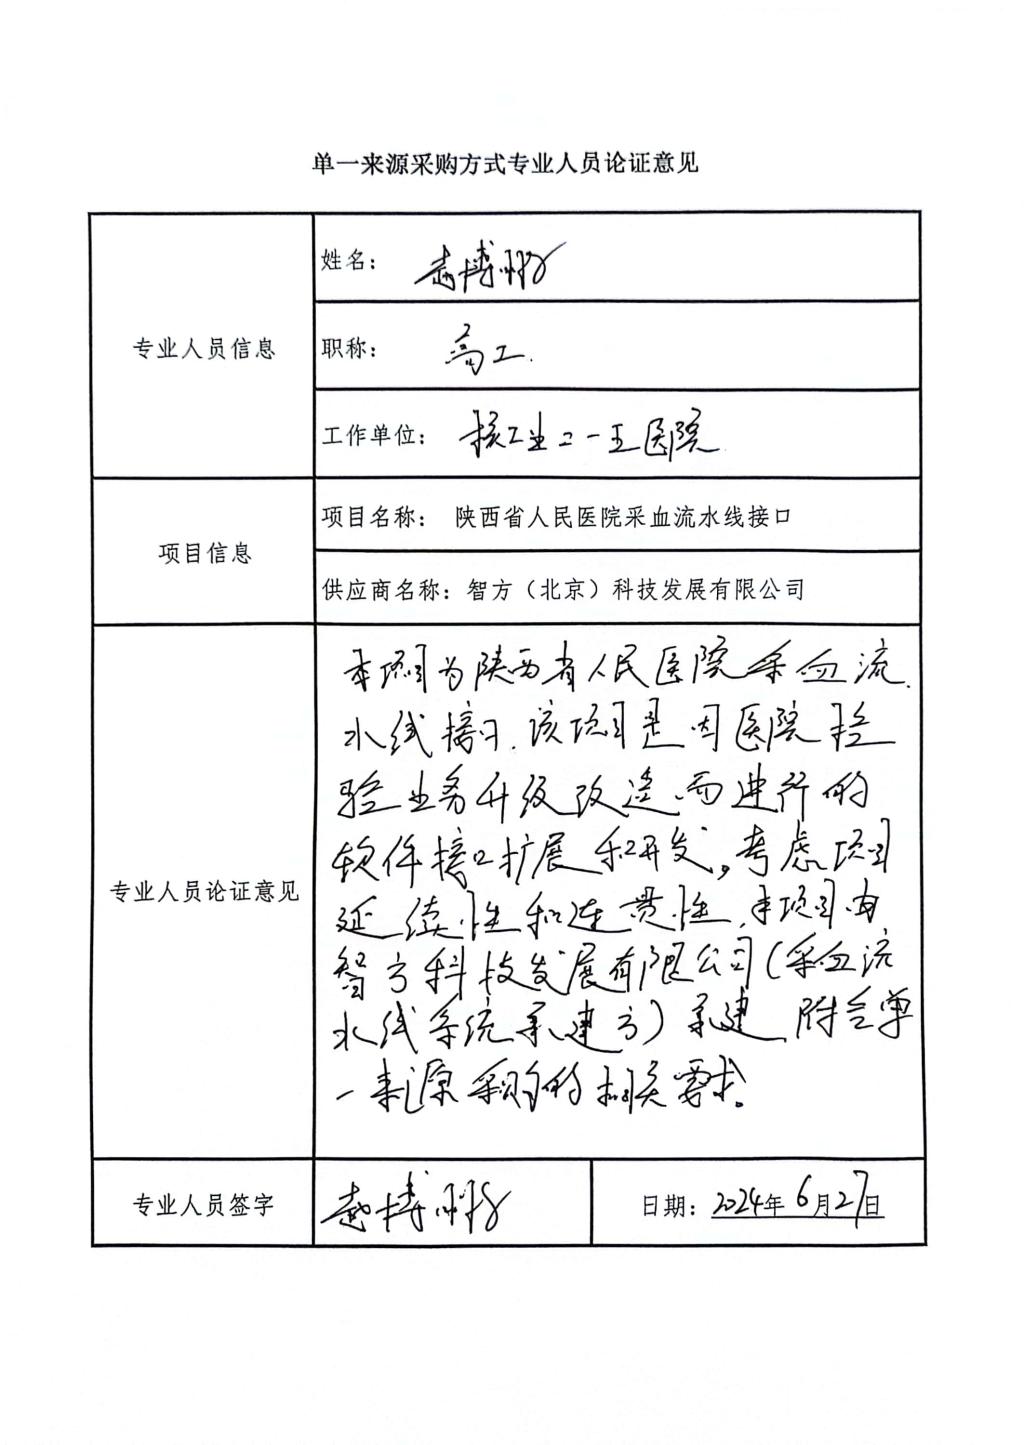 单一来源采购方式专业人员论证意见
专业人员信息
姓名：赵博
职称：高工.
工作单位：核工业二一五医院
项目信息
项目名称：陕西省人民医院采血流水线接口
供应商名称：智方（北京）科技发展有限公司
专业人员论证意见
本项目为陕西省人民医院采血流
水线接口，该项目是因医院检
验业务升级改造而进行的
软件接口扩展和开发。考虑项目
延续性和连贯性，本项目由
智方科技发展有限公司（采血流
水线系统承建方）承建，附合单
一来源采购的相关要求。
专业人员签字
赵博
日期：2024年6月27日